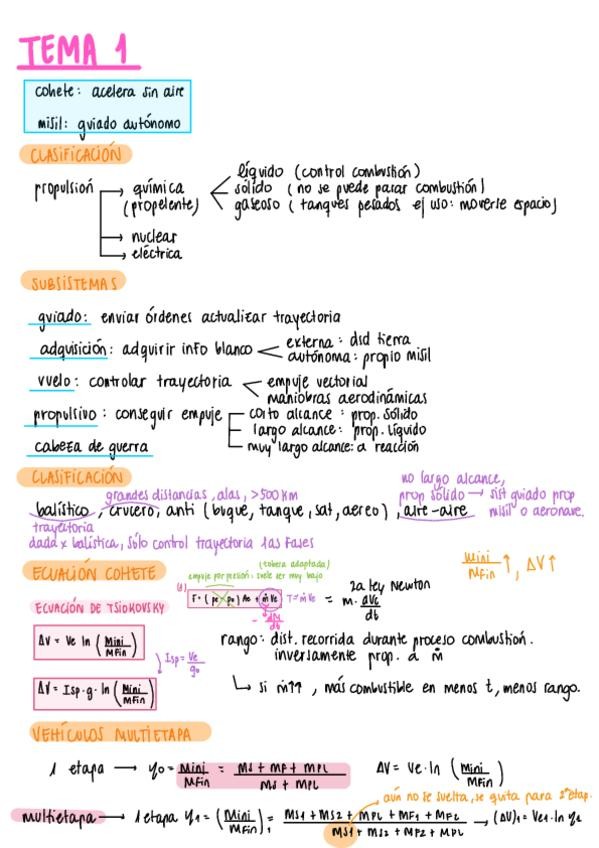 TEMA 1
cohete: acelera sin aire
misil: guiado autónomo
CLASIFICACIÓN
propulsión → química (propelente)
líquido (control combustión)
sólido (no se puede parar combustión)
gaseoso (tanques pesados ej uso: moverse espacio)
→ nuclear
→ eléctrica
SUBSISTEMAS
guiado: enviar órdenes actualizar trayectoria
adquisición: adquirir info blanco
externa: dsd tierra
autónoma: propio misil
vuelo: controlar trayectoria
empuje vectorial
maniobras aerodinámicas
propulsivo: conseguir empuje
corto alcance: prop. sólido
largo alcance: prop. líquido
muy largo alcance: a reacción
cabeza de guerra
CLASIFICACIÓN
grandes distancias, alas, >500 km
no largo alcance,
prop sólido → sist guiado prop
misil o aeronave.
balístico, crucero, anti (buque, tanque, sat, aereo), aire-aire
trayectoria
dada x balística, sólo control trayectoria 1as fases
Mini/Mfin ↑, ΔV↑
ECUACIÓN COHETE
(tobera adaptada)
empuje por presión: suele ser muy bajo
F = (pe - po) Ae + ṁ Ve T = ṁ Ve = 2a ley Newton
m · dVe/dt
- dM/dt
ECUACIÓN DE TSIOKOVSKY
ΔV = Ve ln (Mini/Mfin)
Isp = Ve/g0
ΔV = Isp · g · ln (Mini/Mfin)
rango: dist. recorrida durante proceso combustión.
inversamente prop. a ṁ
↳ si ṁ↑↑, más combustible en menos t, menos rango.
VEHÍCULOS MULTIETAPA
1 etapa → y0 = Mini/Mfin = (Ms + MP + MPL)/(Ms + MPL) ΔV = Ve · ln (Mini/Mfin)
aún no se suelta, se quita para 2ª etap.
multietapa → 1 etapa y1 = (Mini/Mfin)1 = (MS1 + MS2 + MP1 + MP2 + MPL)/(MS1 + MS2 + MP2 + MPL) → (ΔV)1 = Ve1 · ln y1